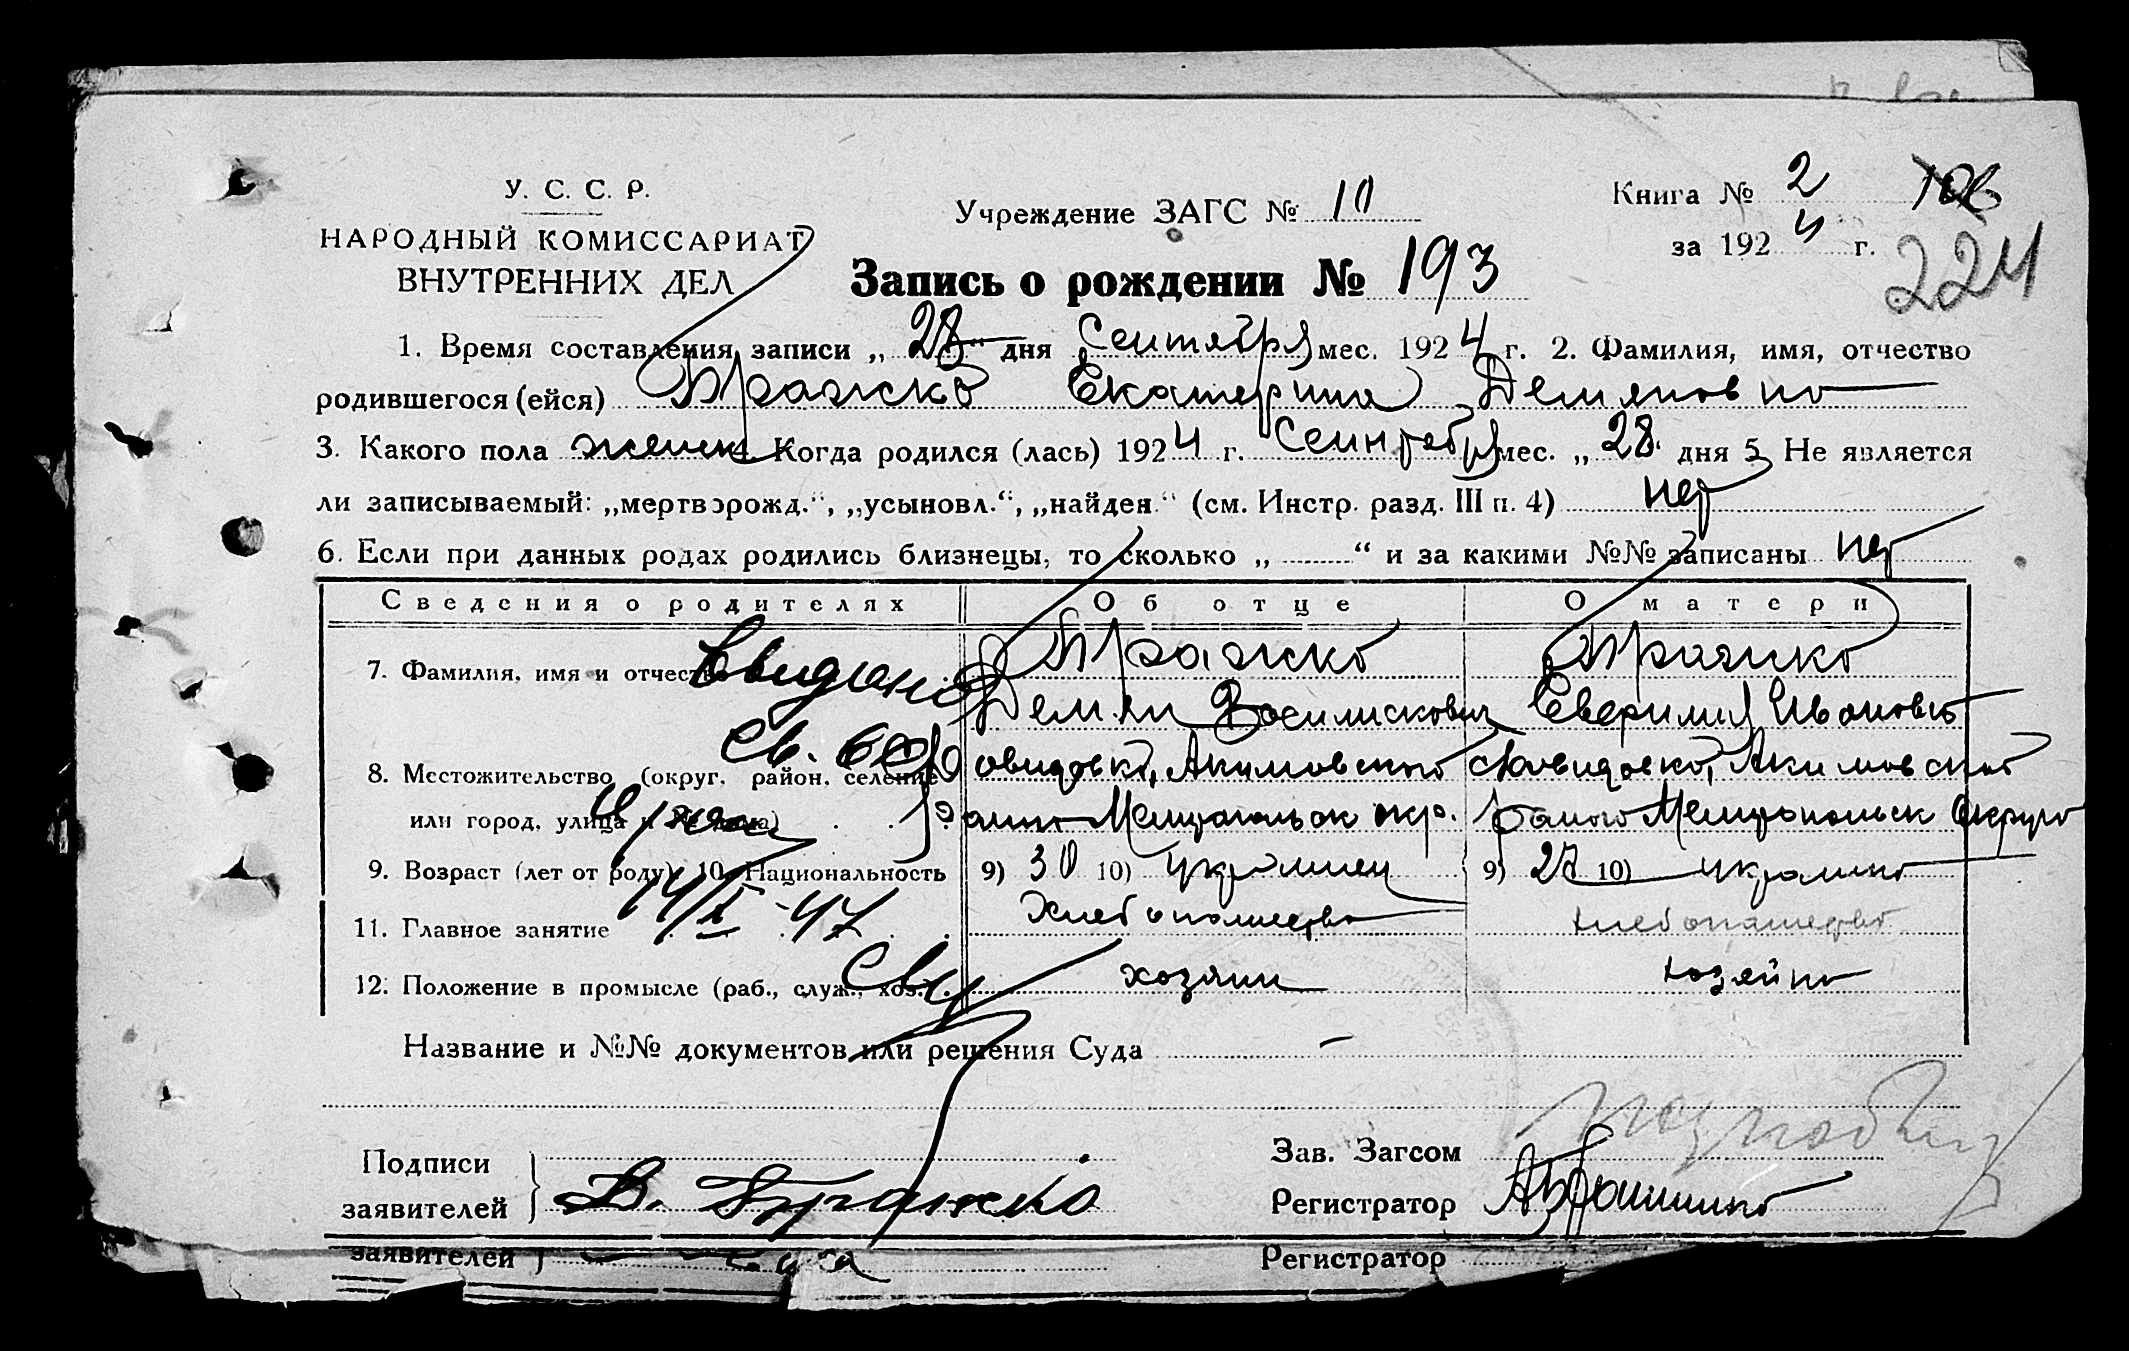 У. С. С. Р.
НАРОДНЫЙ КОМИССАРИАТ
ВНУТРЕННИХ ДЕЛ
Учреждение ЗАГС № 10
Книга № 2
за 1924 г.
224
Запись о рождении № 193
1. Время составления записи „ 28 “ дня Сентября мес. 1924 г. 2. Фамилия, имя, отчество
родившегося (ейся) Бражко Екатерина Демяновно
3. Какого пола женск 4. Когда родился (лась) 1924 г. Сентября мес. „ 28 “ дня 5. Не является
ли записываемый: „мертворожд.“, „усыновл.“, „найден.“ (см. Инстр. разд. III п. 4) нет
6. Если при данных родах родились близнецы, то сколько „ “ и за какими №№ записаны нет
Сведения о родителях Об отце О матери
7. Фамилия, имя и отчество Бражко Бражко
Демян Ивановно
8. Местожительство (округ, район, селение Акимовского Акимовского
или город, улица и № дома) Мелитопольск окр. Мелитопольск округо
9. Возраст (лет от роду) 10. Национальность 9) 30 10) украинец 9) 27 10) украинко
11. Главное занятие Хлебопашество хлебопашество
12. Положение в промысле (раб., служ., хоз.) хозяин хозяйко
Свидано
14/X-47
Название и №№ документов или решения Суда –
Подписи
заявителей
В. Бражко
Зав. Загсом
Регистратор
заявителей
Регистратор